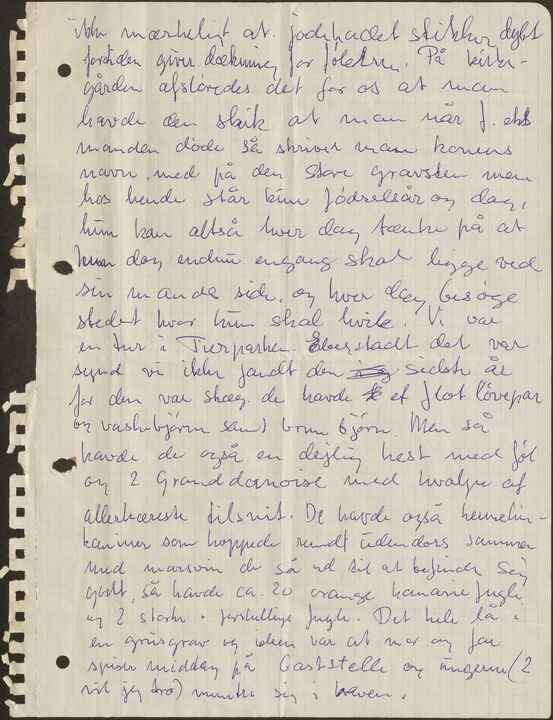 ikke mærkeligt at jødehadet stikker dybt
fortiden giver dækning for følelsen. På kirke-
gården afsløredes det for os at man
havde den skik at man når f. eks
manden døde så skriver man konens
navn med på den store gravsten men
hos hende står kun fødselsår og dag,
hun kan altså hver dag tænke på at
hun dog endnu engang skal ligge ved
sin mands side, og hver dag besøge
stedet hvor hun skal hvile. Vi var
en tur i Tierparken Eberstadt det var
synd vi ikke fandt den sidste år
for den var skæg. de havde et flot løvepar
og vaskebjørn samt brun bjørn. Men så
havde de også en dejlig hest med føl
og 2 Granddanoise med hvalpe af
allerkæreste tilsnit. De havde også hermelin-
kaniner som hoppede rundt udendørs sammen
med marsvin de så ud til at befinde sig
godt, så havde ca. 20 orange kanariefugle
og 2 stork + forskellige fugle. Det hele lå i
en grusgrav og ideen var at mor og far
spiste middag på Gaststelle og ungerne (2
vil jeg tro) muntre sig i haven.